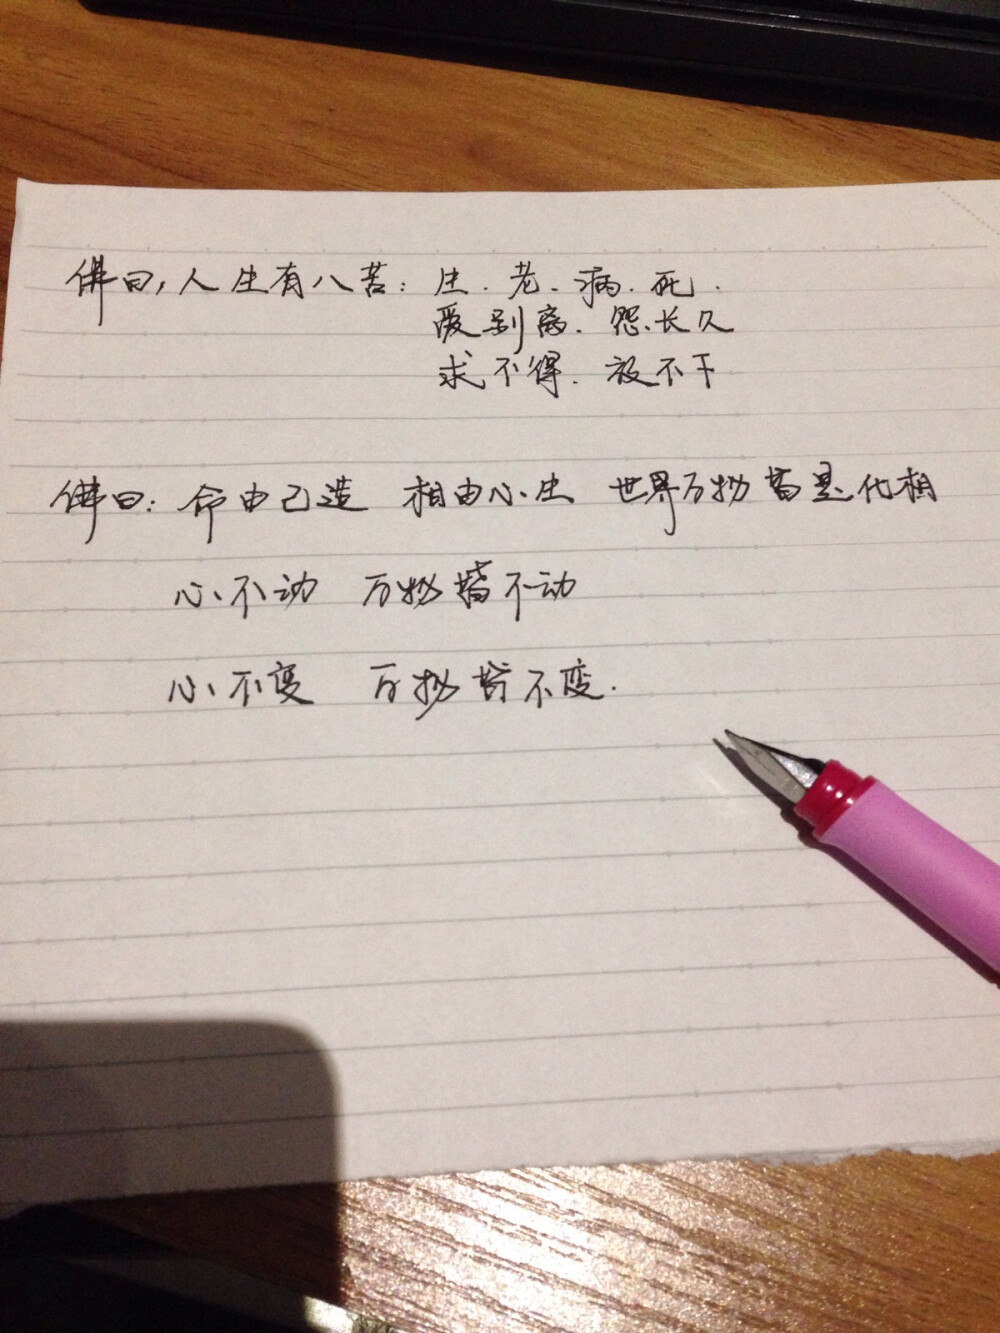 佛曰，人生有八苦：生．老．病．死．
爱别离．怨长久
求不得．放不下
佛曰：命由己造 相由心生 世界万物皆是化相
心不动 万物皆不动
心不变 万物皆不变．